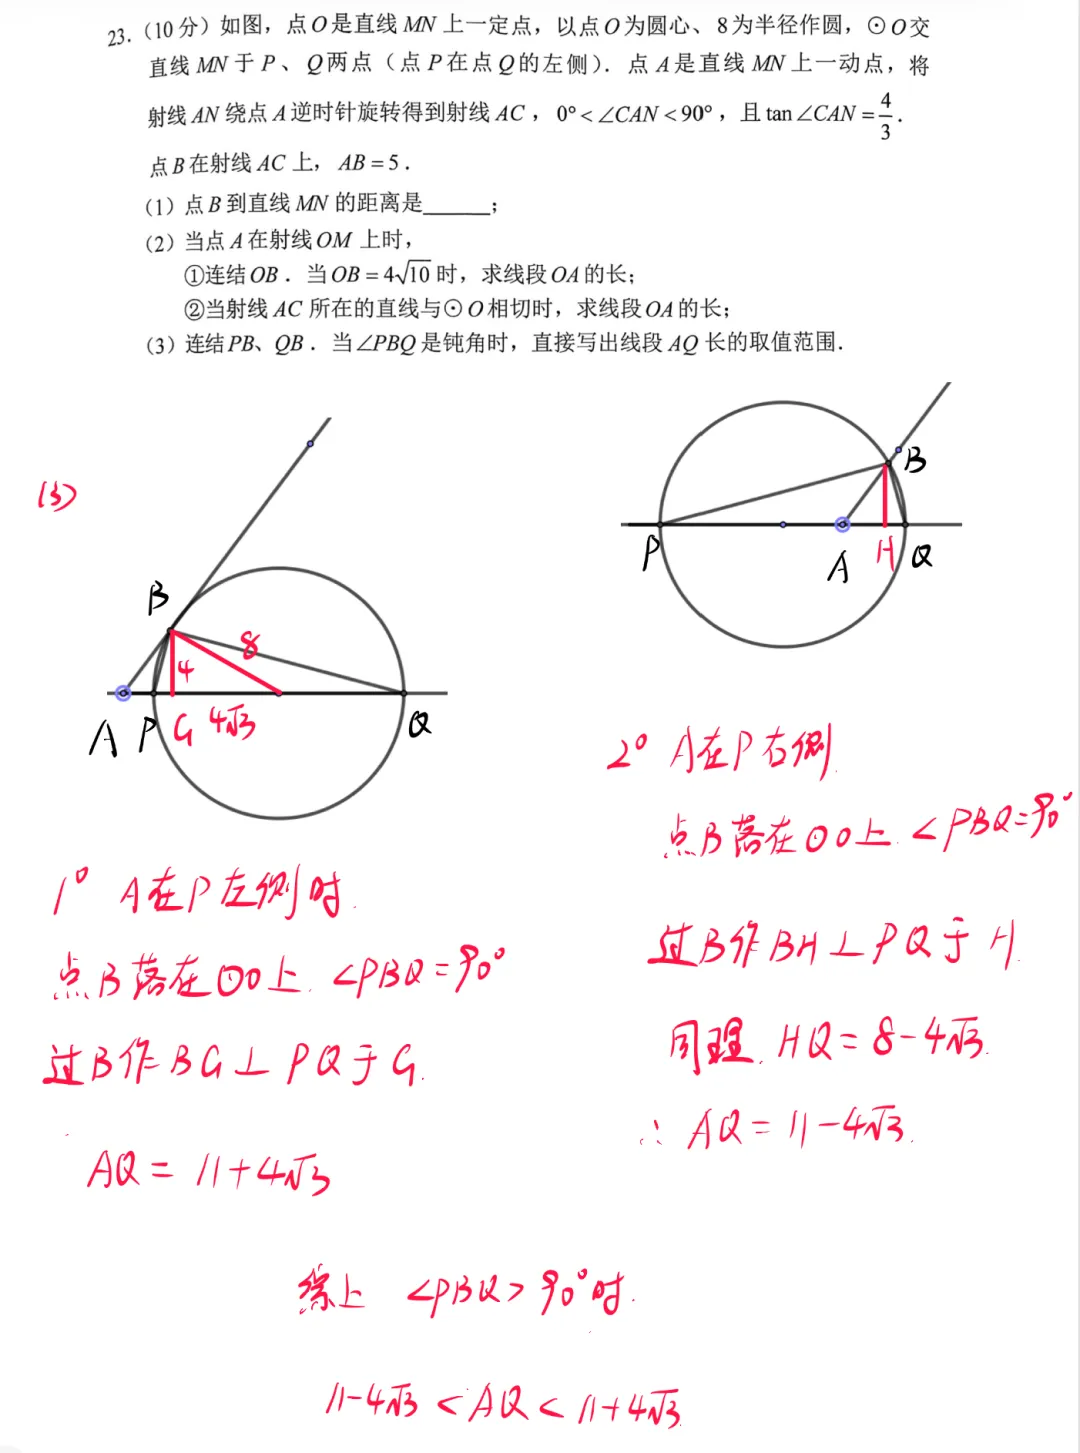 23.(10分)如图，点O是直线MN上一定点，以点O为圆心、8为半径作圆，⊙O交
直线MN于P、Q两点（点P在点Q的左侧）．点A是直线MN上一动点，将
射线AN绕点A逆时针旋转得到射线AC，0°<∠CAN<90°，且tan∠CAN=4/3．
点B在射线AC上，AB=5．
(1) 点B到直线MN的距离是______；
(2) 当点A在射线OM上时，
①连结OB．当OB=4√10时，求线段OA的长；
②当射线AC所在的直线与⊙O相切时，求线段OA的长；
(3) 连结PB、QB．当∠PBQ是钝角时，直接写出线段AQ长的取值范围．
(3)
B
8
4
A P G 4√3 Q
B
P A H Q
1° A在P左侧时.
点B落在⊙O上. ∠PBQ=90°
过B作BG⊥PQ于G.
AQ=11+4√3
2° A在P右侧.
点B落在⊙O上.∠PBQ=90°
过B作BH⊥PQ于H.
同理.HQ=8-4√3.
∴ AQ=11-4√3.
综上 ∠PBQ>90°时.
11-4√3<AQ<11+4√3